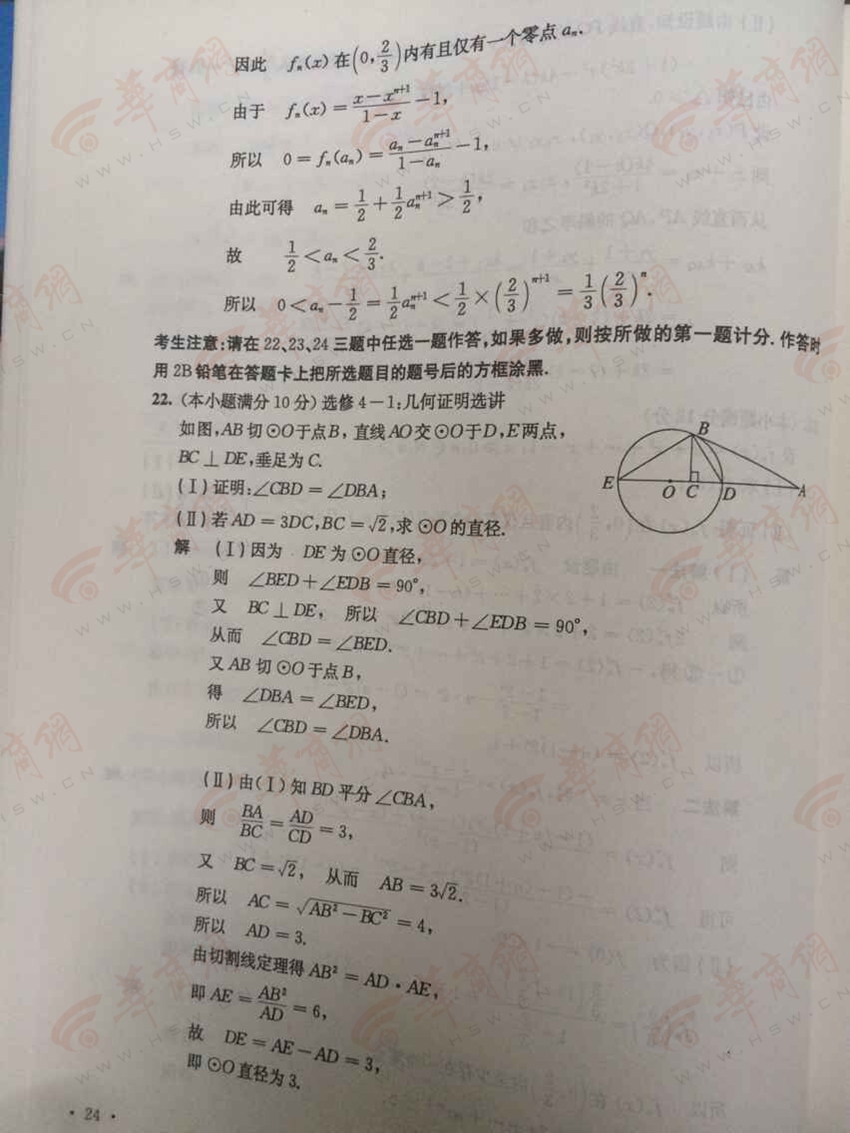 因此 fₙ(x)在(0,2/3)内有且仅有一个零点aₙ.
由于 fₙ(x)=(x-xⁿ⁺¹)/(1-x)-1,
所以 0=fₙ(aₙ)=(aₙ-aₙⁿ⁺¹)/(1-aₙ)-1,
由此可得 aₙ=1/2+1/2aₙⁿ⁺¹>1/2,
故 1/2<aₙ<2/3.
所以 0<aₙ-1/2=1/2aₙⁿ⁺¹<1/2×(2/3)ⁿ⁺¹=1/3(2/3)ⁿ.
考生注意:请在22、23、24三题中任选一题作答,如果多做,则按所做的第一题计分.作答时
用2B铅笔在答题卡上把所选题目的题号后的方框涂黑.
22.(本小题满分10分)选修4-1:几何证明选讲
如图,AB切⊙O于点B,直线AO交⊙O于D,E两点,
BC⊥DE,垂足为C.
(Ⅰ)证明:∠CBD=∠DBA;
(Ⅱ)若AD=3DC,BC=√2,求⊙O的直径.
B
E
O C D A
解 (Ⅰ)因为 DE为⊙O直径,
则 ∠BED+∠EDB=90°,
又 BC⊥DE, 所以 ∠CBD+∠EDB=90°,
从而 ∠CBD=∠BED.
又AB切⊙O于点B,
得 ∠DBA=∠BED,
所以 ∠CBD=∠DBA.
(Ⅱ)由(Ⅰ)知BD平分∠CBA,
则 BA/BC=AD/CD=3,
又 BC=√2, 从而 AB=3√2.
所以 AC=√(AB²-BC²)=4,
所以 AD=3.
由切割线定理得AB²=AD·AE,
即AE=AB²/AD=6,
故 DE=AE-AD=3,
即⊙O直径为3.
·24·
華商網
WWW.HSW.CN